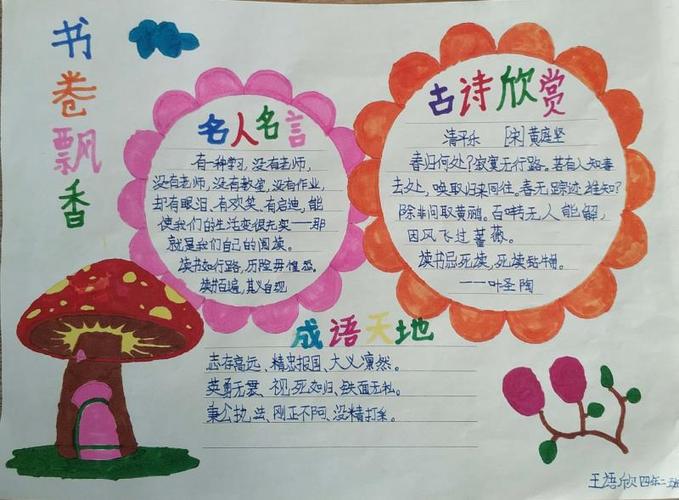 书卷飘香
名人名言
有一种学习,没有老师,
没有老师,没有教室,没有作业,
却有眼泪、有欢笑、有启迪,能
使我们的生活变很充实——那
就是我们自己的阅读。
读书如行路,历险毋惶恐。
读书百遍,其义自现
古诗欣赏
清平乐 [宋]黄庭坚
春归何处?寂寞无行路。若有人知春
去处,唤取归来同住。春无踪迹谁知?
除非问取黄鹂。百啭无人能解,
因风飞过蔷薇。
读书忌死读,死读钻牛角。
——叶圣陶
成语天地
志存高远、精忠报国、大义凛然。
英勇无畏、视死如归、铁面无私。
秉公执法、刚正不阿、没精打采。
王语欣四年二班